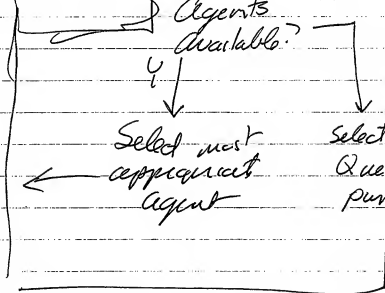 Agents
available?
Y
Select most
appropriate
agent
Select
Que
pur